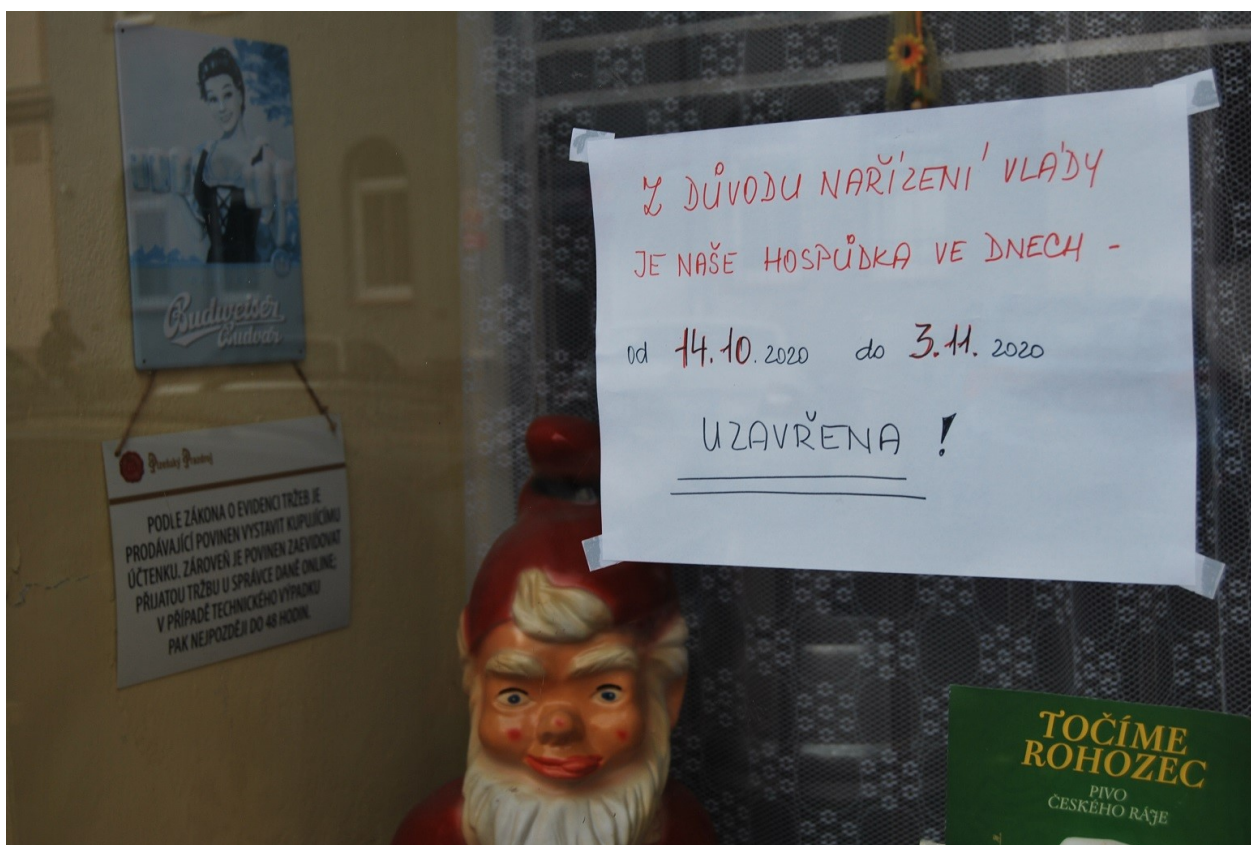 Budweiser
Budvar
Plzeňský Prazdroj
PODLE ZÁKONA O EVIDENCI TRŽEB JE
PRODÁVAJÍCÍ POVINEN VYSTAVIT KUPUJÍCÍMU
ÚČTENKU. ZÁROVEŇ JE POVINEN ZAEVIDOVAT
PŘIJATOU TRŽBU U SPRÁVCE DANĚ ONLINE;
V PŘÍPADĚ TECHNICKÉHO VÝPADKU
PAK NEJPOZDĚJI DO 48 HODIN.
Z DŮVODU NAŘÍZENÍ VLÁDY
JE NAŠE HOSPŮDKA VE DNECH -
od 14.10. 2020 do 3.11. 2020
UZAVŘENA !
TOČÍME
ROHOZEC
PIVO
ČESKÉHO RÁJE